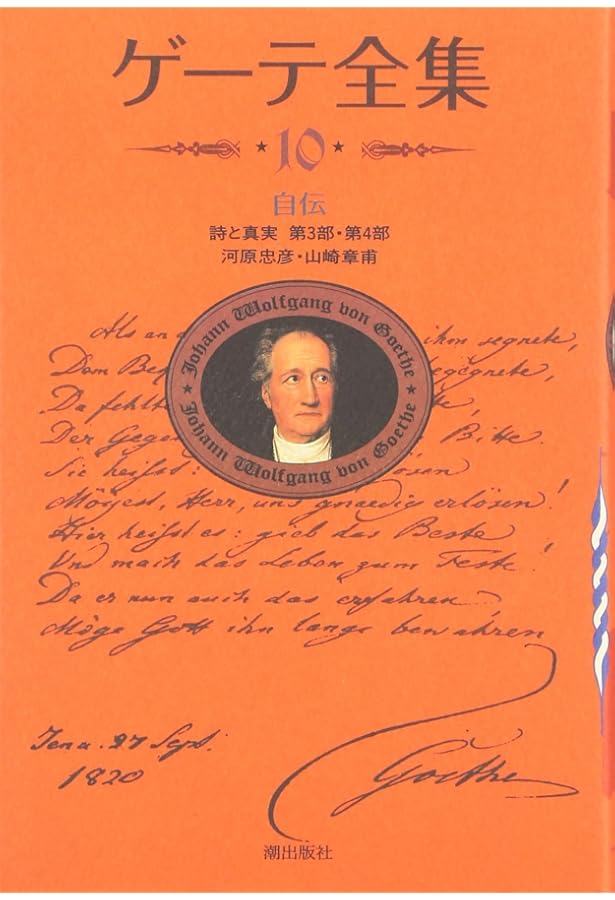 ゲーテ全集
★ 10 ★
自伝
詩と真実 第3部・第4部
河原忠彦・山崎章甫
★ Johann Wolfgang von Goethe ★
Johann Wolfgang von Goethe
Als an ihm segnete,
Dem
Da fehlt
Der Bitte.
Sie heisst:
Mögest, Herr, uns gnaedig erlösen!
Hier heisst es: gieb das Beste
Und mach das Leben zum Feste!
Da er nun auch das erfahren
Möge Gott ihn lange bewahren
Jena. 27 Sept.
1820
Goethe
潮出版社